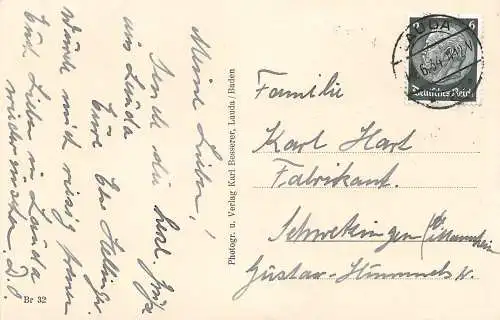 Meine Lieben!
Sende die herzl. Grüße
aus Lauda
Eure
würde mich riesig freuen
Euch Lieben in Lauda
Br 32
Photogr. u. Verlag Karl Besserer, Lauda/Baden
LAUDA
6
Deutsches Reich
Familie
Karl Hart
Fabrikant.
Schwetzingen / b/ Mannheim
Gustav-Hummel